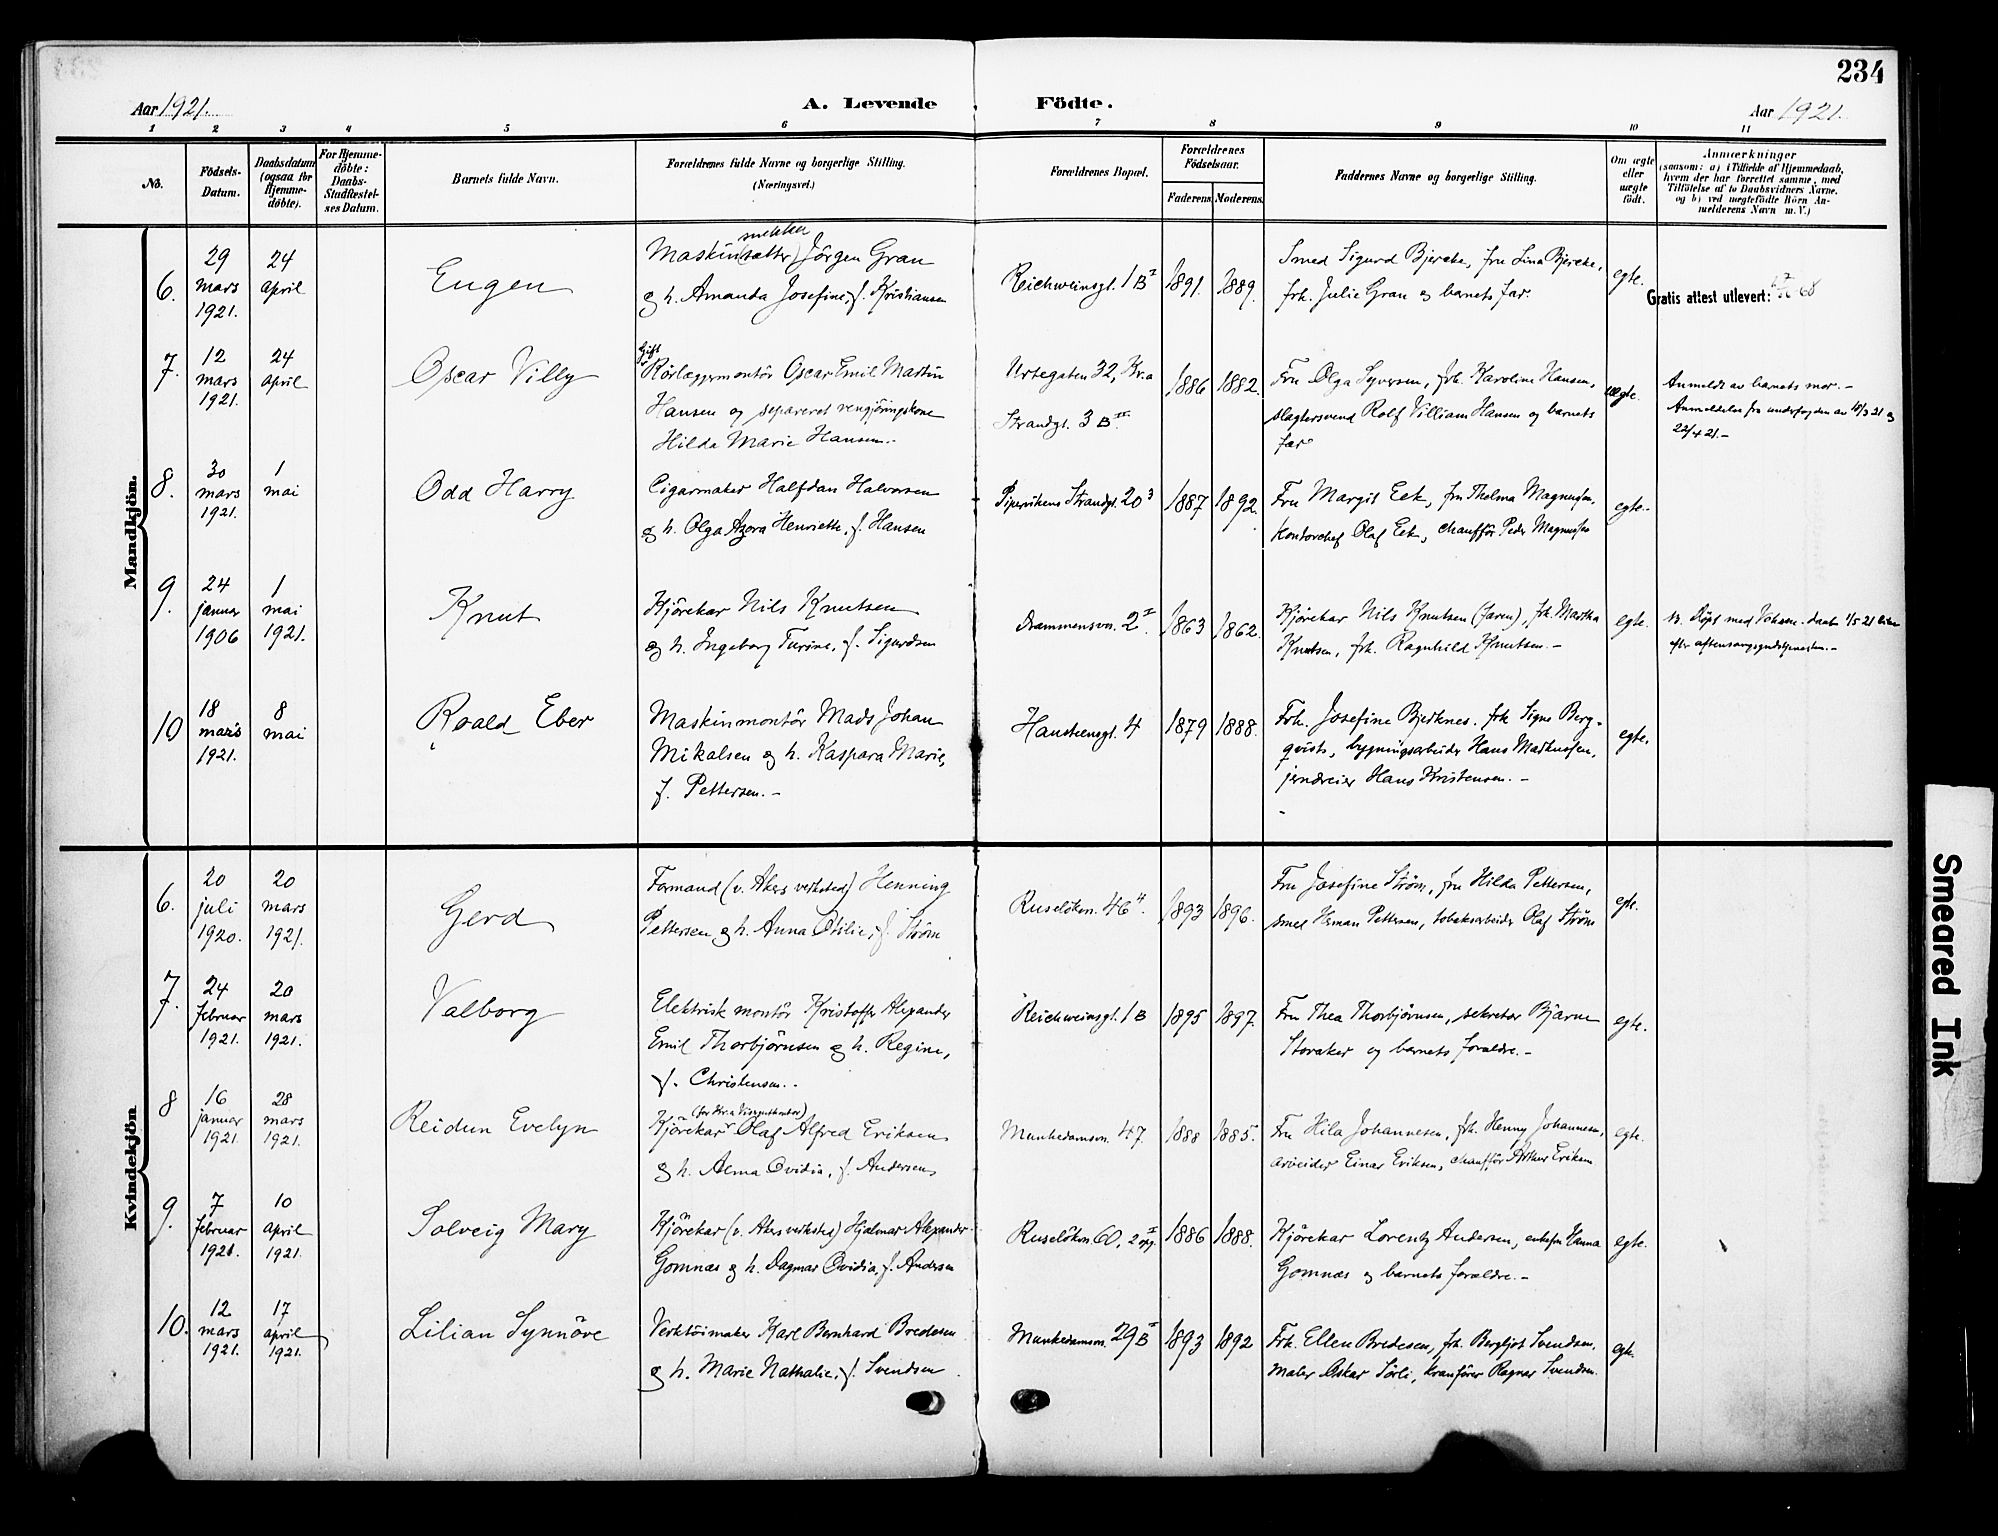 234
Aar 1921.
A. Levende Födte.
Aar 1921.
1 2 3 4 5 6 7 8 9 10 11
No.
Födsels-Datum.
Daabsdatum (ogsaa for Hjemme-döbte).
For Hjemme-döbte: Daabs-Stadfæstel-ses Datum.
Barnets fulde Navn.
Forældrenes fulde Navne og borgerlige Stilling.
(Næringsvei.)
Forældrenes Bopæl.
Forældrenes Födselsaar.
Faderens. Moderens.
Faddernes Navne og borgerlige Stilling.
Om ægte eller uægte födt.
Anmærkninger
(saasom: a) i Tilfælde af Hjemmedaab,
hvem der har forrettet samme, med
Tilföielse af to Daabsvidners Navne,
og b) ved uægtefödte Börn An-
melderens Navn m. V.)
Mandkjön.
6. 29 mars 1921. 24 april
Eugen
snekker
Maskin(sætter) Jörgen Gran
og h. Amanda Josefine, f. Kristiansen
Reichweinsgt. 1 B I 1891. 1889.
Smed Sigurd Bjercke, fru Lina Bjercke,
frk. Julie Gran og barnets far.
egte.
Gratis attest utlevert:
7. 12 mars 1921. 24 april
Oscar Villy
Gift
Rörlæggermontör Oscar Emil Martin
Hansen og separeret rengjöringskone
Hilda Marie Hansen.-
Urtegaten 32, Kr.a
Strandgt. 3 B III
1886 1882.
Fru Olga Syversen, frk. Karoline Hansen,
slagtersvend Rolf Villiam Hansen og barnets
far
uegte.
Anmeldt av barnets mor.-
Anmeldelse fra underfogden av 18/3 21 og
22/4 21.-
8. 30 mars 1921. 1 mai
Odd Harry
Cigarmaker Halfdan Halvorsen
og h. Olga Azora Henriette, f. Hansen
Pipervikens Strandgt. 20 3 1887 1892.
Fru Margit Eek, fru Thelma Magnussen,
kontorchef Olaf Eek, chaufför Peder Magnussen
egte.-
9. 24 januar 1906 1 mai 1921.
Knut
Kjörekar Nils Knutsen
og h. Ingeborg Turine, f. Sigurdsen
Drammensvn. 2 I 1863 1862.
Kjörekar Nils Knutsen (faren), frk. Martha
Knutsen, frk. Ragnhild Knutsen.-
egte.
10 18 mars 1921. 8 mai
Roald Eber
Maskinmontör Mads Johan
Mikalsen og h. Kaspara Marie,
f. Pettersen.-
Hansteensgt. 4 1879 1888.
Frk. Josefine Bjerknes, frk Signe Berg-
qvist, bygningsarbeider Hans Mathussen,
jerndreier Hans Kristensen.-
egte.
Kvindekjön.
6. 20 juli 1920. 20 mars 1921.
Gerd
Formand (v. Akers verksted) Henning
Pettersen og h. Anna Otilie, f. Ström
Ruselökvn. 46 4. 1893 1896.
Fru Josefine Ström, fru Hilda Pettersen,
smed Herman Pettersen, tobaksarbeider Olaf Ström
egte.
7. 24 februar 1921. 20 mars 1921.
Valborg
Elektrisk montör Kristoffer Alexander
Emil Thorbjörnsen og h. Regine,
f. Christensen.
Reichweinsgt. 1 B 1895 1897.
Fru Thea Thorbjörnsen, sekretær Bjarne
Storaker og barnets forældre.-
egte.
8 16 januar 1921. 28 mars 1921.
Reidun Evelyn
Kjörekar Olaf Alfred Eriksen
og h. Alma Ovidia, f. Andersen
Munkedamsvn. 47. 1888 1885.
Fru Hila Johannesen, frk. Henny Johannesen,
arbeider Einar Eriksen, chaufför Arthur Eriksen
egte.
9. 7 februar 1921. 10 april 1921.
Solveig Mary
Kjörekar (v. Akers verksted) Hjalmar Alexander
Gomnæs og h. Dagmar Ovidia, f. Andersen
Ruselökvn 60, 2 opg. I 1886 1888.
Kjörekar Lorentz Andersen, enkefru Hanna
Gomnæs og barnets forældre.-
egte.
10. 12 mars 1921. 17 april 1921.
Lilian Synnöve
Verktöimaker Karl Bernhard Bredesen
og h. Marie Nathalie, f. Svendsen
Munkedamsvn. 29 B I 1893 1892
Frk. Ellen Bredesen, frk. Bergljot Svendsen,
maler Oskar Sörli, kranförer Ragnar Svendsen.
egte.
Smeared Ink